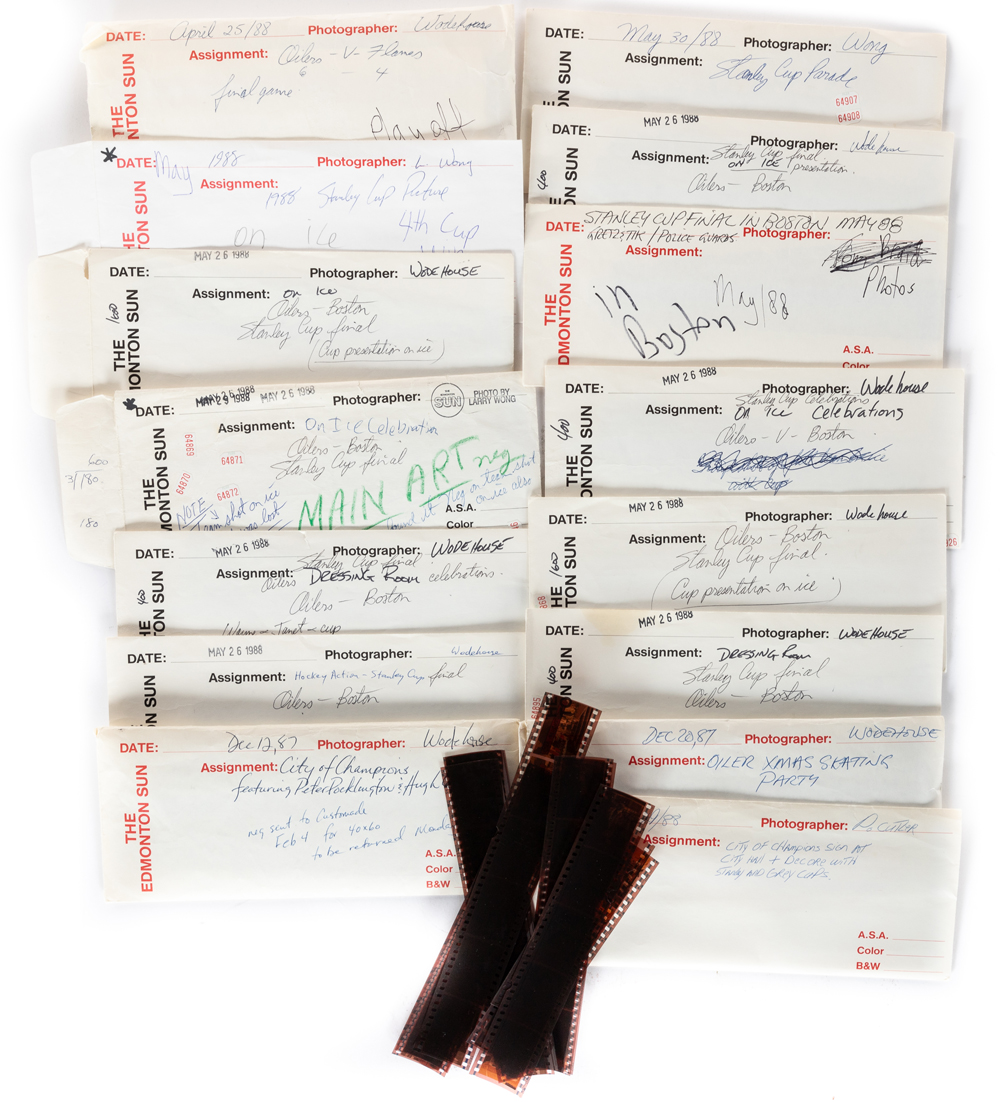 DATE: April 25/88 Photographer: Wodehouse
Assignment: Oilers - V - Flames
6 - 4
final game
playoff
THE
EDMONTON SUN
DATE: May 1988 Photographer: L. Wong
Assignment: 1988 Stanley Cup Picture
on ice 4th Cup
MAY 26 1988
DATE: Photographer: WODEHOUSE
Assignment: on Ice
Oilers - Boston
Stanley Cup final
(Cup presentation on ice)
1600
THE
MONTON SUN
MAY 26 1988 MAY 26 1988
DATE: Photographer: SUN PHOTO BY
LARRY WONG
Assignment: On Ice Celebration
Oilers - Boston
Stanley Cup final
64869
64870
64871
64872
MAIN ART neg
NOTE
team shot on ice
was lost
found it neg on team shot
on ice also
A.S.A.
Color
THE
MONTON SUN
600
3/180
180
MAY 26 1988
DATE: Photographer: WODEHOUSE
Stanley Cup final
Assignment: DRESSING ROOM celebrations.
Oilers
Oilers - Boston
Wayne - Janet - cup
400
HE
ON SUN
MAY 26 1988
DATE: Wodehouse
Assignment: Hockey Action - Stanley Cup final
Oilers - Boston
N SUN
DATE: Dec 12, 87 Photographer: Wodehouse
Assignment: City of Champions
featuring Peter Pocklington & Hugh
neg sent to Customade
Feb 4 for 40x60
to be returned
A.S.A.
Color
B&W
THE
EDMONTON SUN
DATE: May 30/88 Photographer: Wong
Assignment: Stanley Cup Parade
64907
64908
THE
EDMONTON SUN
MAY 26 1988
DATE: Photographer: Wodehouse
Assignment: Stanley Cup final
ON ICE presentation.
Oilers - Boston
400
DATE: STANLEY CUP FINAL IN BOSTON MAY 88
GRETZ & TIK / POLICE GUARDS Photographer:
Assignment: Photos
in
Boston May/88
A.S.A.
Color
THE
EDMONTON SUN
MAY 26 1988
DATE: Photographer: Wodehouse
Stanley Cup Celebrations
Assignment: On Ice Celebrations
Oilers - V - Boston
400
THE
MONTON SUN
MAY 26 1988
DATE: Photographer: Wodehouse
Assignment: Oilers - Boston
Stanley Cup final.
(Cup presentation on ice)
1600
HE
TON SUN
MAY 26 1988
DATE: Photographer: WODEHOUSE
Assignment: DRESSING Room
Stanley Cup final
Oilers - Boston
400
THE
ON SUN
64895
DEC 20, 87 Photographer: WODEHOUSE
Assignment: OILER XMAS SKATING
PARTY
/88 Photographer:
Assignment: CITY OF CHAMPIONS SIGN AT
CITY HALL + DECORE WITH
STANLEY AND GREY CUPS.
A.S.A.
Color
B&W